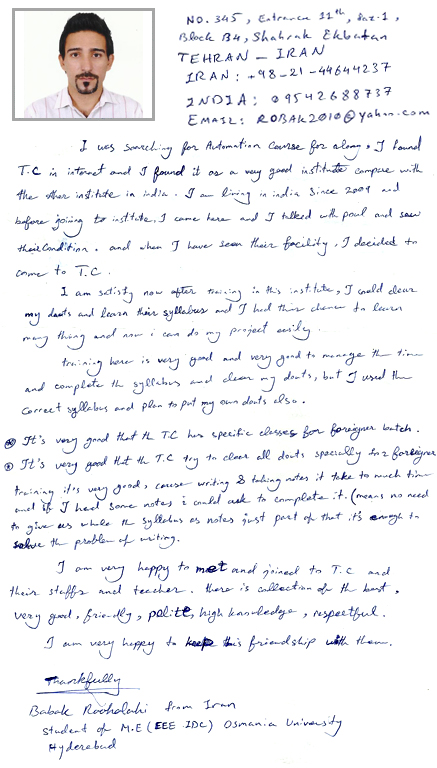 NO. 345, Entrance 11th, Saz-1,
Block B4, Shahrak Ekbatan
TEHRAN – IRAN
IRAN: +98-21-44644237
INDIA: 09542688737
EMAIL: ROBAK2010@yahoo.com
I was searching for Automation Course for along, I found
T.C in internet and I found it as a very good institute compare with
the other institute in india. I am living in india since 2009 and
before joining to institute, I came here and I talked with paul and saw
their condition. and when I have seen their facility, I decided to
come to T.C.
I am satisfy now after training in this institute, I could clear
my douts and learn their syllabus and I had this chance to learn
many thing and now i can do my project easily.
training here is very good and very good to manage the time
and complete the syllabus and clear my douts, but I used the
correct syllabus and plan to put my own douts also.
It's very good that the T.C has specific classes for foreigner batch.
It's very good that the T.C try to clear all douts specially for foreigner
training it's very good, cause writing & taking notes it take to much time
and if I had some notes i could ask to complete it. (means no need
to give us whole the syllabus as notes just part of that it's enough to
solve the problem of writing.
I am very happy to met and joined to T.C and
their staffs and teacher. there is collection of the best,
very good, friendly, polite, high knowledge, respectful.
I am very happy to keep this friendship with them.
Thankfully
Babak Rooholahi from Iran
student of M.E (EEE IDC) Osmania University
Hyderabad